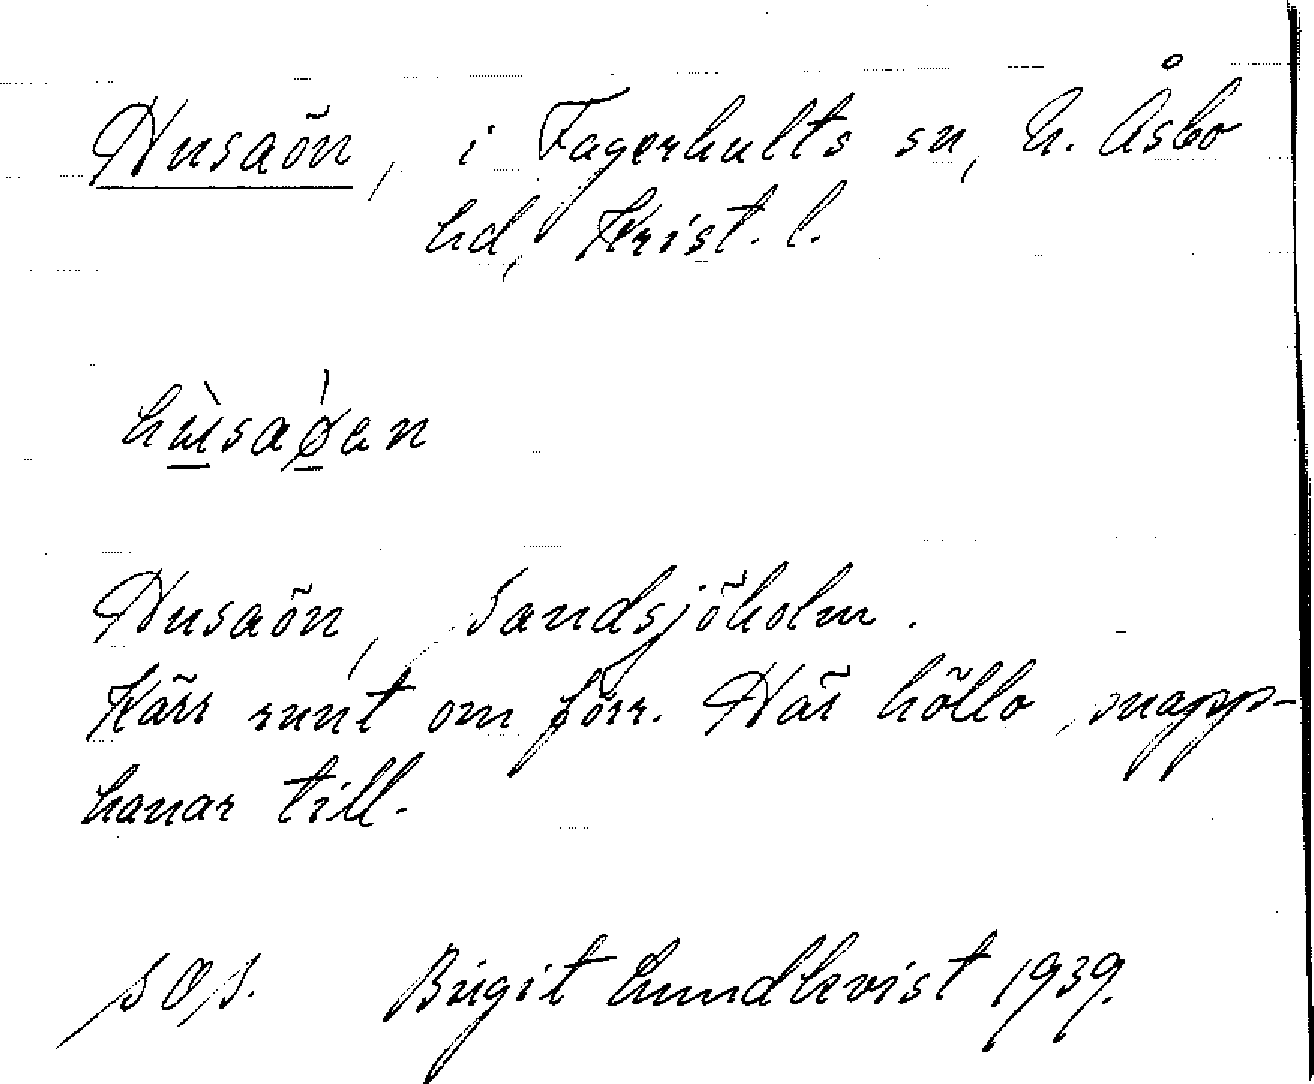 Husaön, i Fagerhults sn, N. Åsbo
hd, Krist. l.
hùsaǿen
Husaön, Sandsjöholm.
Kärr runt om förr. Här höllo snapp-
hanar till.
sos. Birgit Lundkvist 1939.